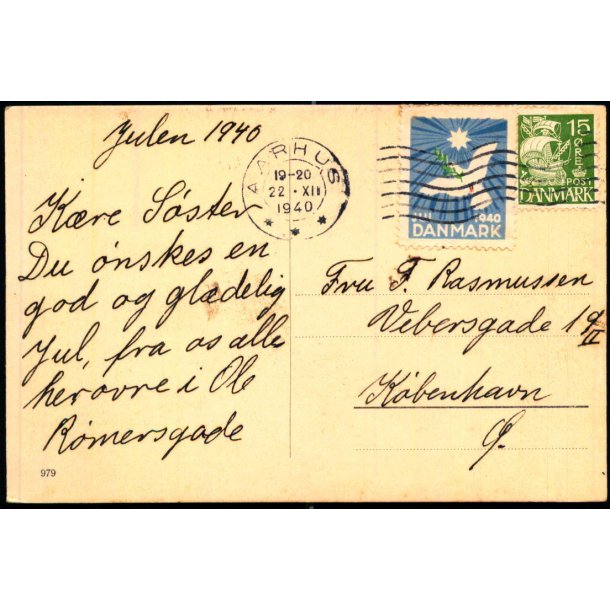 Julen 1940
AARHUS
19-20
22·XII
1940
JUL 1940
DANMARK
15
ØRE
POST
DANMARK
Kære Søster
Du ønskes en
god og glædelig
Jul, fra os alle
herovre i Ole
Rømersgade
979
Fru F. Rasmussen
Vebersgade 19
II
København
Ø.